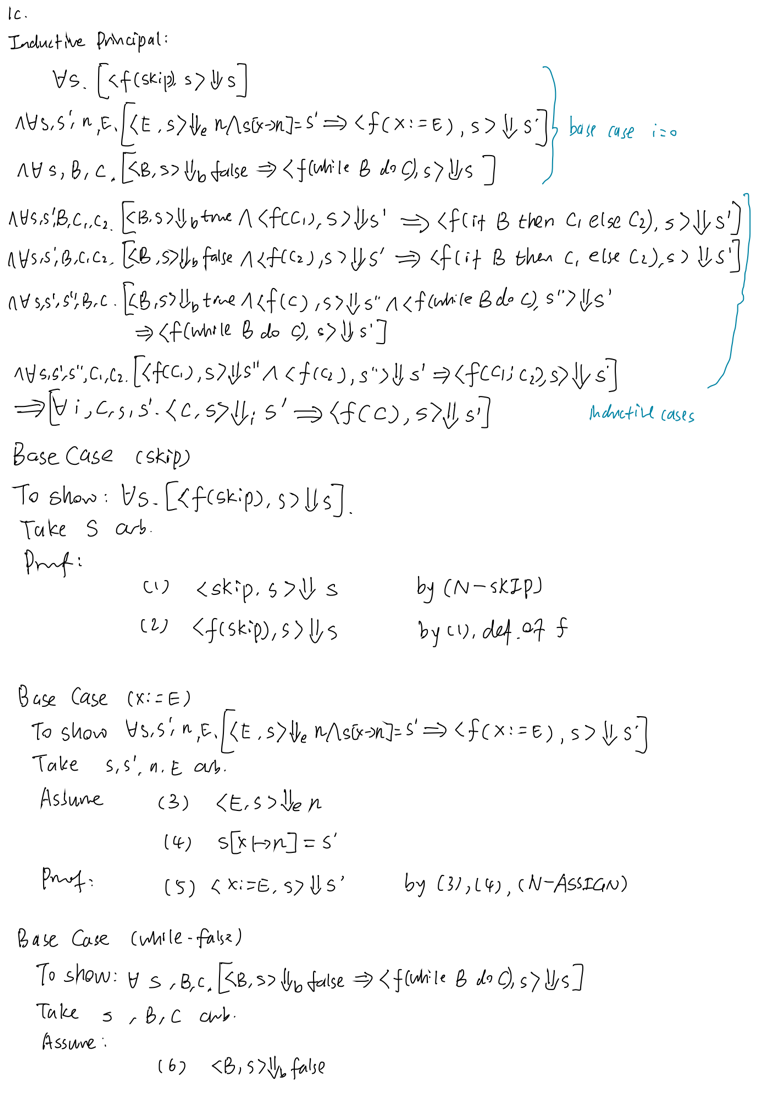 1c.
Inductive Principal:
∀s. [<f(skip), s> ⇓ s]
∧∀s,s',n,E. [<E,s> ⇓e n ∧ s[x↦n]=s' ⇒ <f(x:=E), s> ⇓ s']
∧∀s,B,C. [<B,s> ⇓b false ⇒ <f(while B do C), s> ⇓ s]
base case i=0
∧∀s,s',B,C₁,C₂. [<B,s> ⇓b true ∧ <f(C₁), s> ⇓ s' ⇒ <f(if B then C₁ else C₂), s> ⇓ s']
∧∀s,s',B,C₁,C₂. [<B,s> ⇓b false ∧ <f(C₂), s> ⇓ s' ⇒ <f(if B then C₁ else C₂), s> ⇓ s']
∧∀s,s',s'',B,C. [<B,s> ⇓b true ∧ <f(C), s> ⇓ s'' ∧ <f(while B do C), s''> ⇓ s'
⇒ <f(while B do C), s> ⇓ s']
∧∀s,s',s'',C₁,C₂. [<f(C₁), s> ⇓ s'' ∧ <f(C₂), s''> ⇓ s' ⇒ <f(C₁; C₂), s> ⇓ s']
⇒ [∀i,C,s,s'. <C,s> ⇓i s' ⇒ <f(C), s> ⇓ s']
inductive cases
Base Case (skip)
To show: ∀s. [<f(skip), s> ⇓ s].
Take s arb.
Proof:
(1) <skip, s> ⇓ s by (N-SKIP)
(2) <f(skip), s> ⇓ s by (1), def. of f
Base Case (x:=E)
To show ∀s,s',n,E. [<E,s> ⇓e n ∧ s[x↦n]=s' ⇒ <f(x:=E), s> ⇓ s']
Take s,s',n,E arb.
Assume (3) <E,s> ⇓e n
(4) s[x↦n] = s'
Proof: (5) <x:=E, s> ⇓ s' by (3), (4), (N-ASSIGN)
Base Case (while-false)
To show: ∀s,B,C. [<B,s> ⇓b false ⇒ <f(while B do C), s> ⇓ s]
Take s, B, C arb.
Assume:
(6) <B,s> ⇓b false